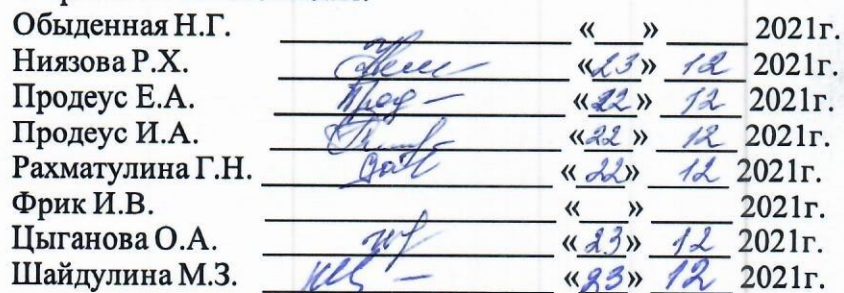 Обыденная Н.Г. «___» ______ 2021г.
Ниязова Р.Х. «23» 12 2021г.
Продеус Е.А. Прод «22» 12 2021г.
Продеус И.А. «22» 12 2021г.
Рахматулина Г.Н. «22» 12 2021г.
Фрик И.В. «___» ______ 2021г.
Цыганова О.А. «23» 12 2021г.
Шайдулина М.З. «23» 12 2021г.